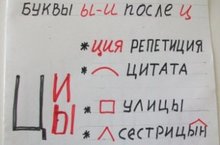 БУКВЫ Ы-И ПОСЛЕ Ц
*ЦИЯ РЕПЕТИЦИЯ
* ЦИТАТА
ЦИ
Ы
* УЛИЦЫ
* СЕСТРИЦЫН